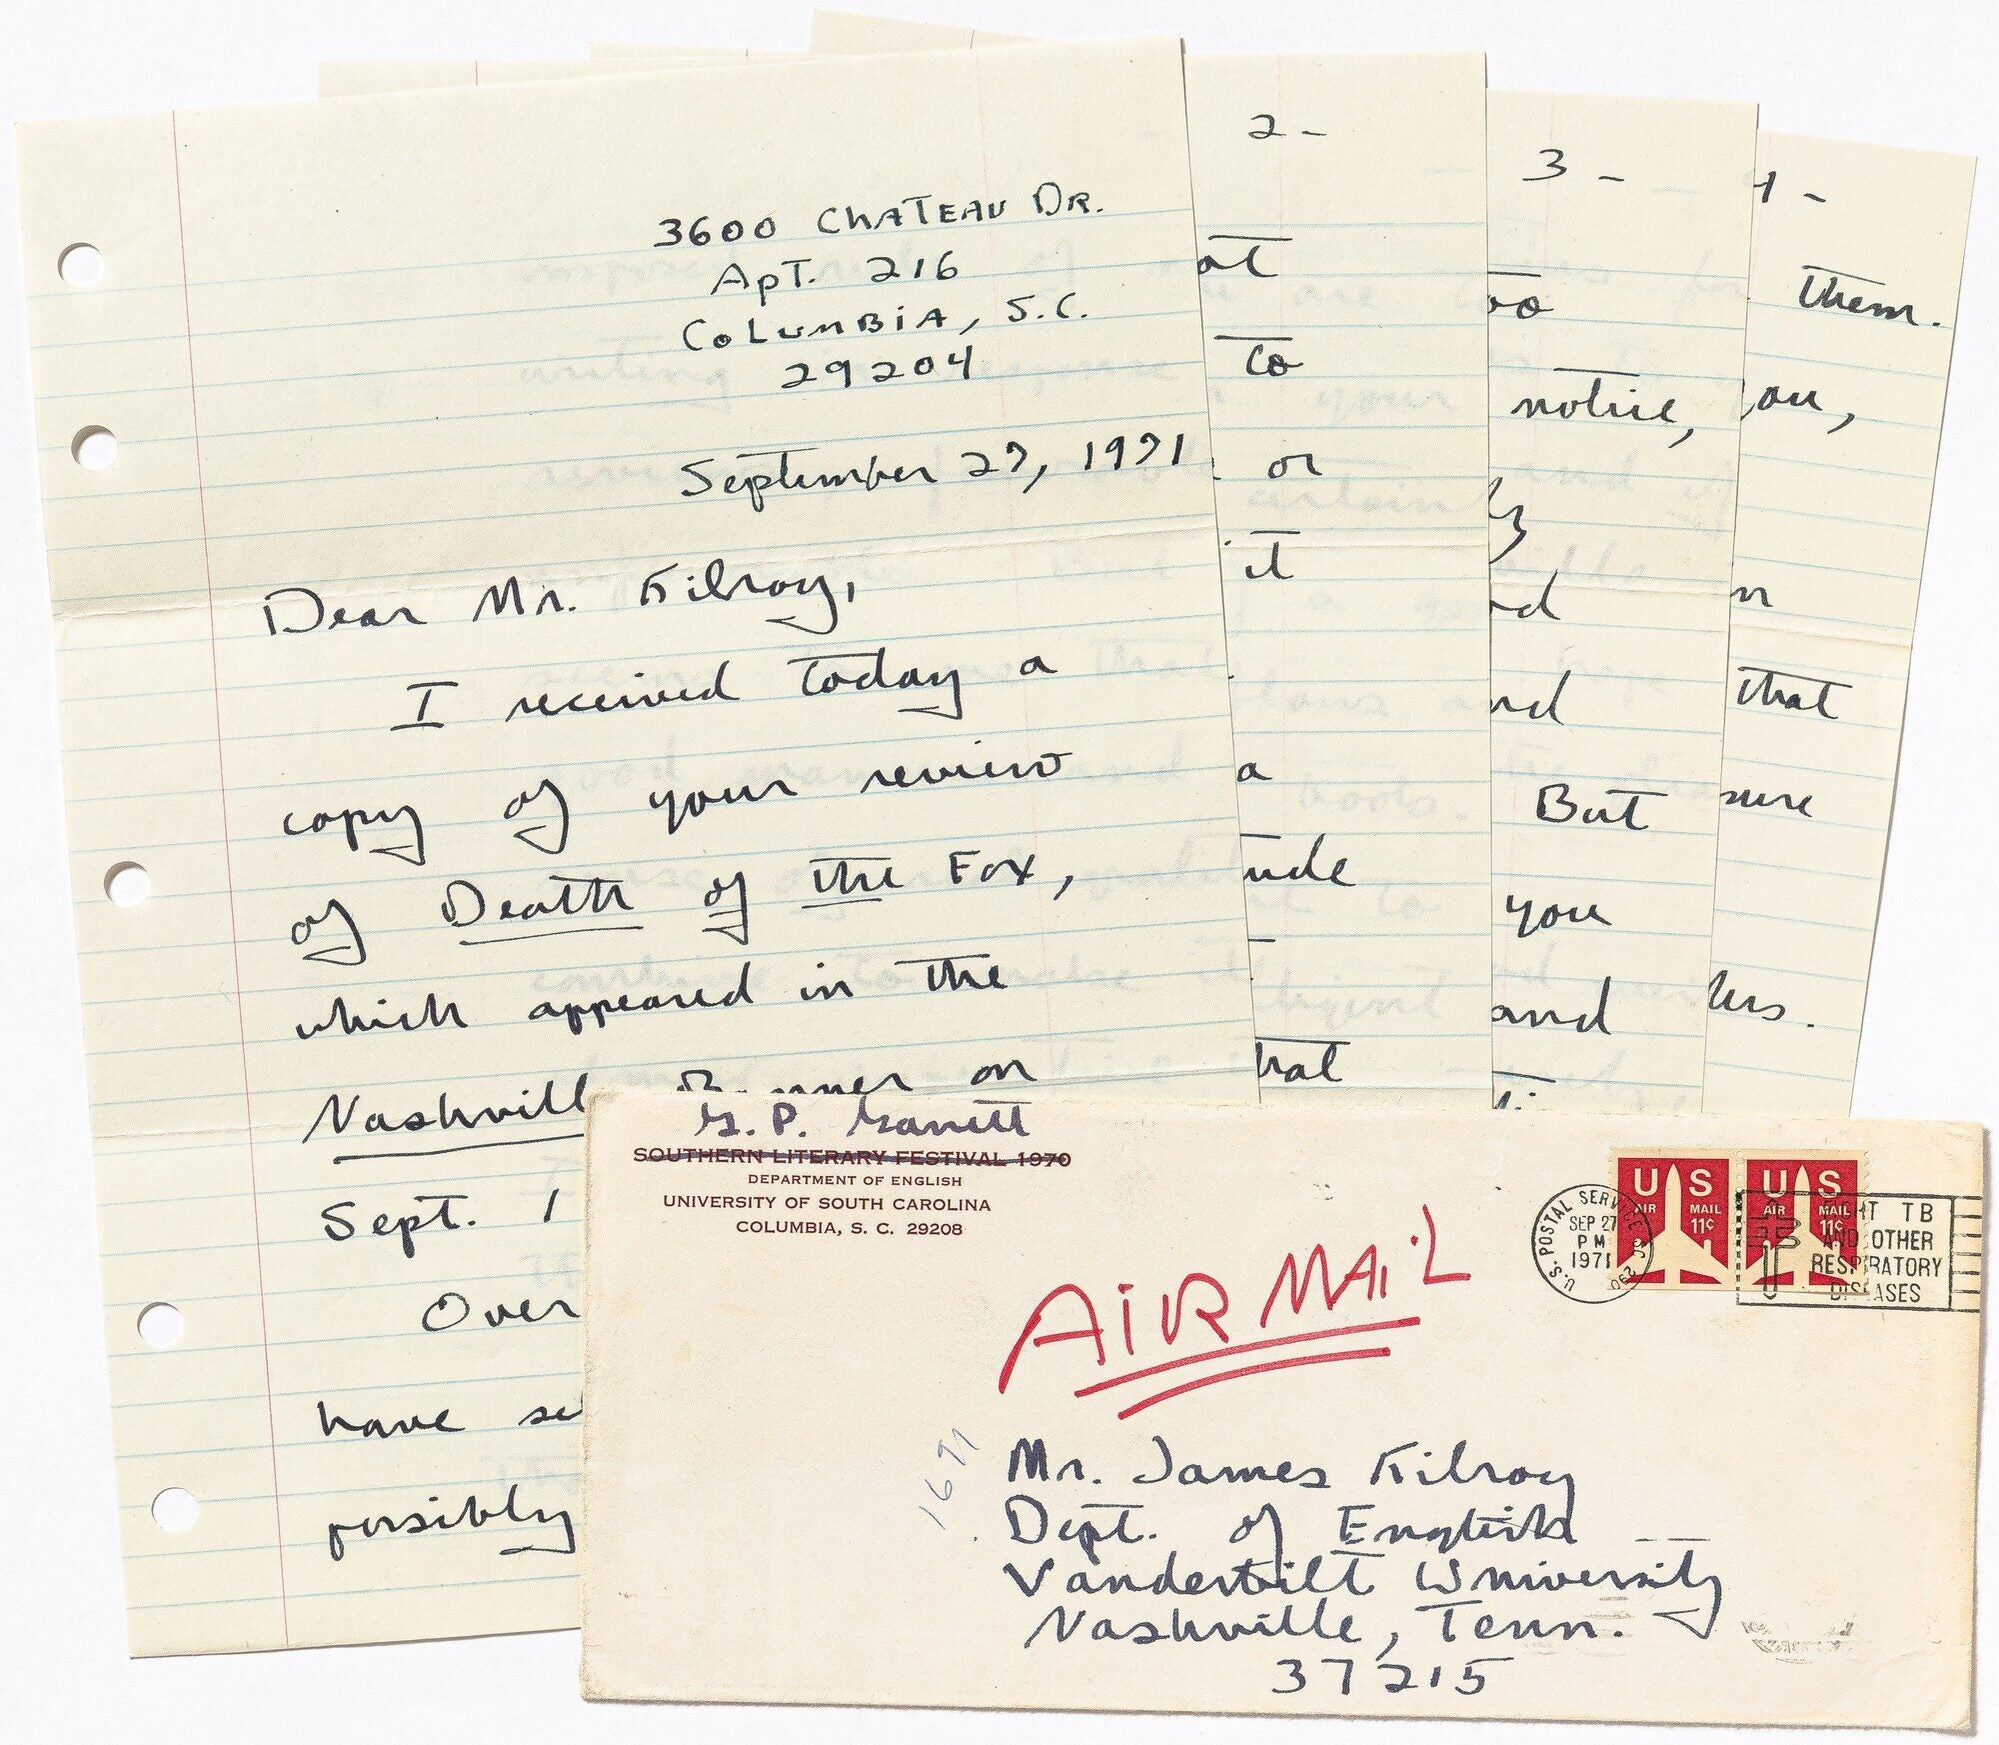 3600 Chateau Dr.
Apt. 216
Columbia, S.C.
29204
September 27, 1971
Dear Mr. Kilroy,
I received today a
copy of your review
of Death of the Fox,
which appeared in the
on
Sept. 1
Over
have
possibly
2 -
to
or
it
a
3 -
notice,
But
you
and
4 -
them.
that
G. P. Garrett
SOUTHERN LITERARY FESTIVAL 1970
DEPARTMENT OF ENGLISH
UNIVERSITY OF SOUTH CAROLINA
COLUMBIA, S. C. 29208
AIR MAIL
U.S. POSTAL SERVICE SC 290
SEP 27
PM
1971
US AIR MAIL 11¢
US AIR MAIL 11¢
TB
AND OTHER
RESPIRATORY
DISEASES
1691
Mr. James Kilroy
Dept. of English
Vanderbilt University
Nashville, Tenn.
37215